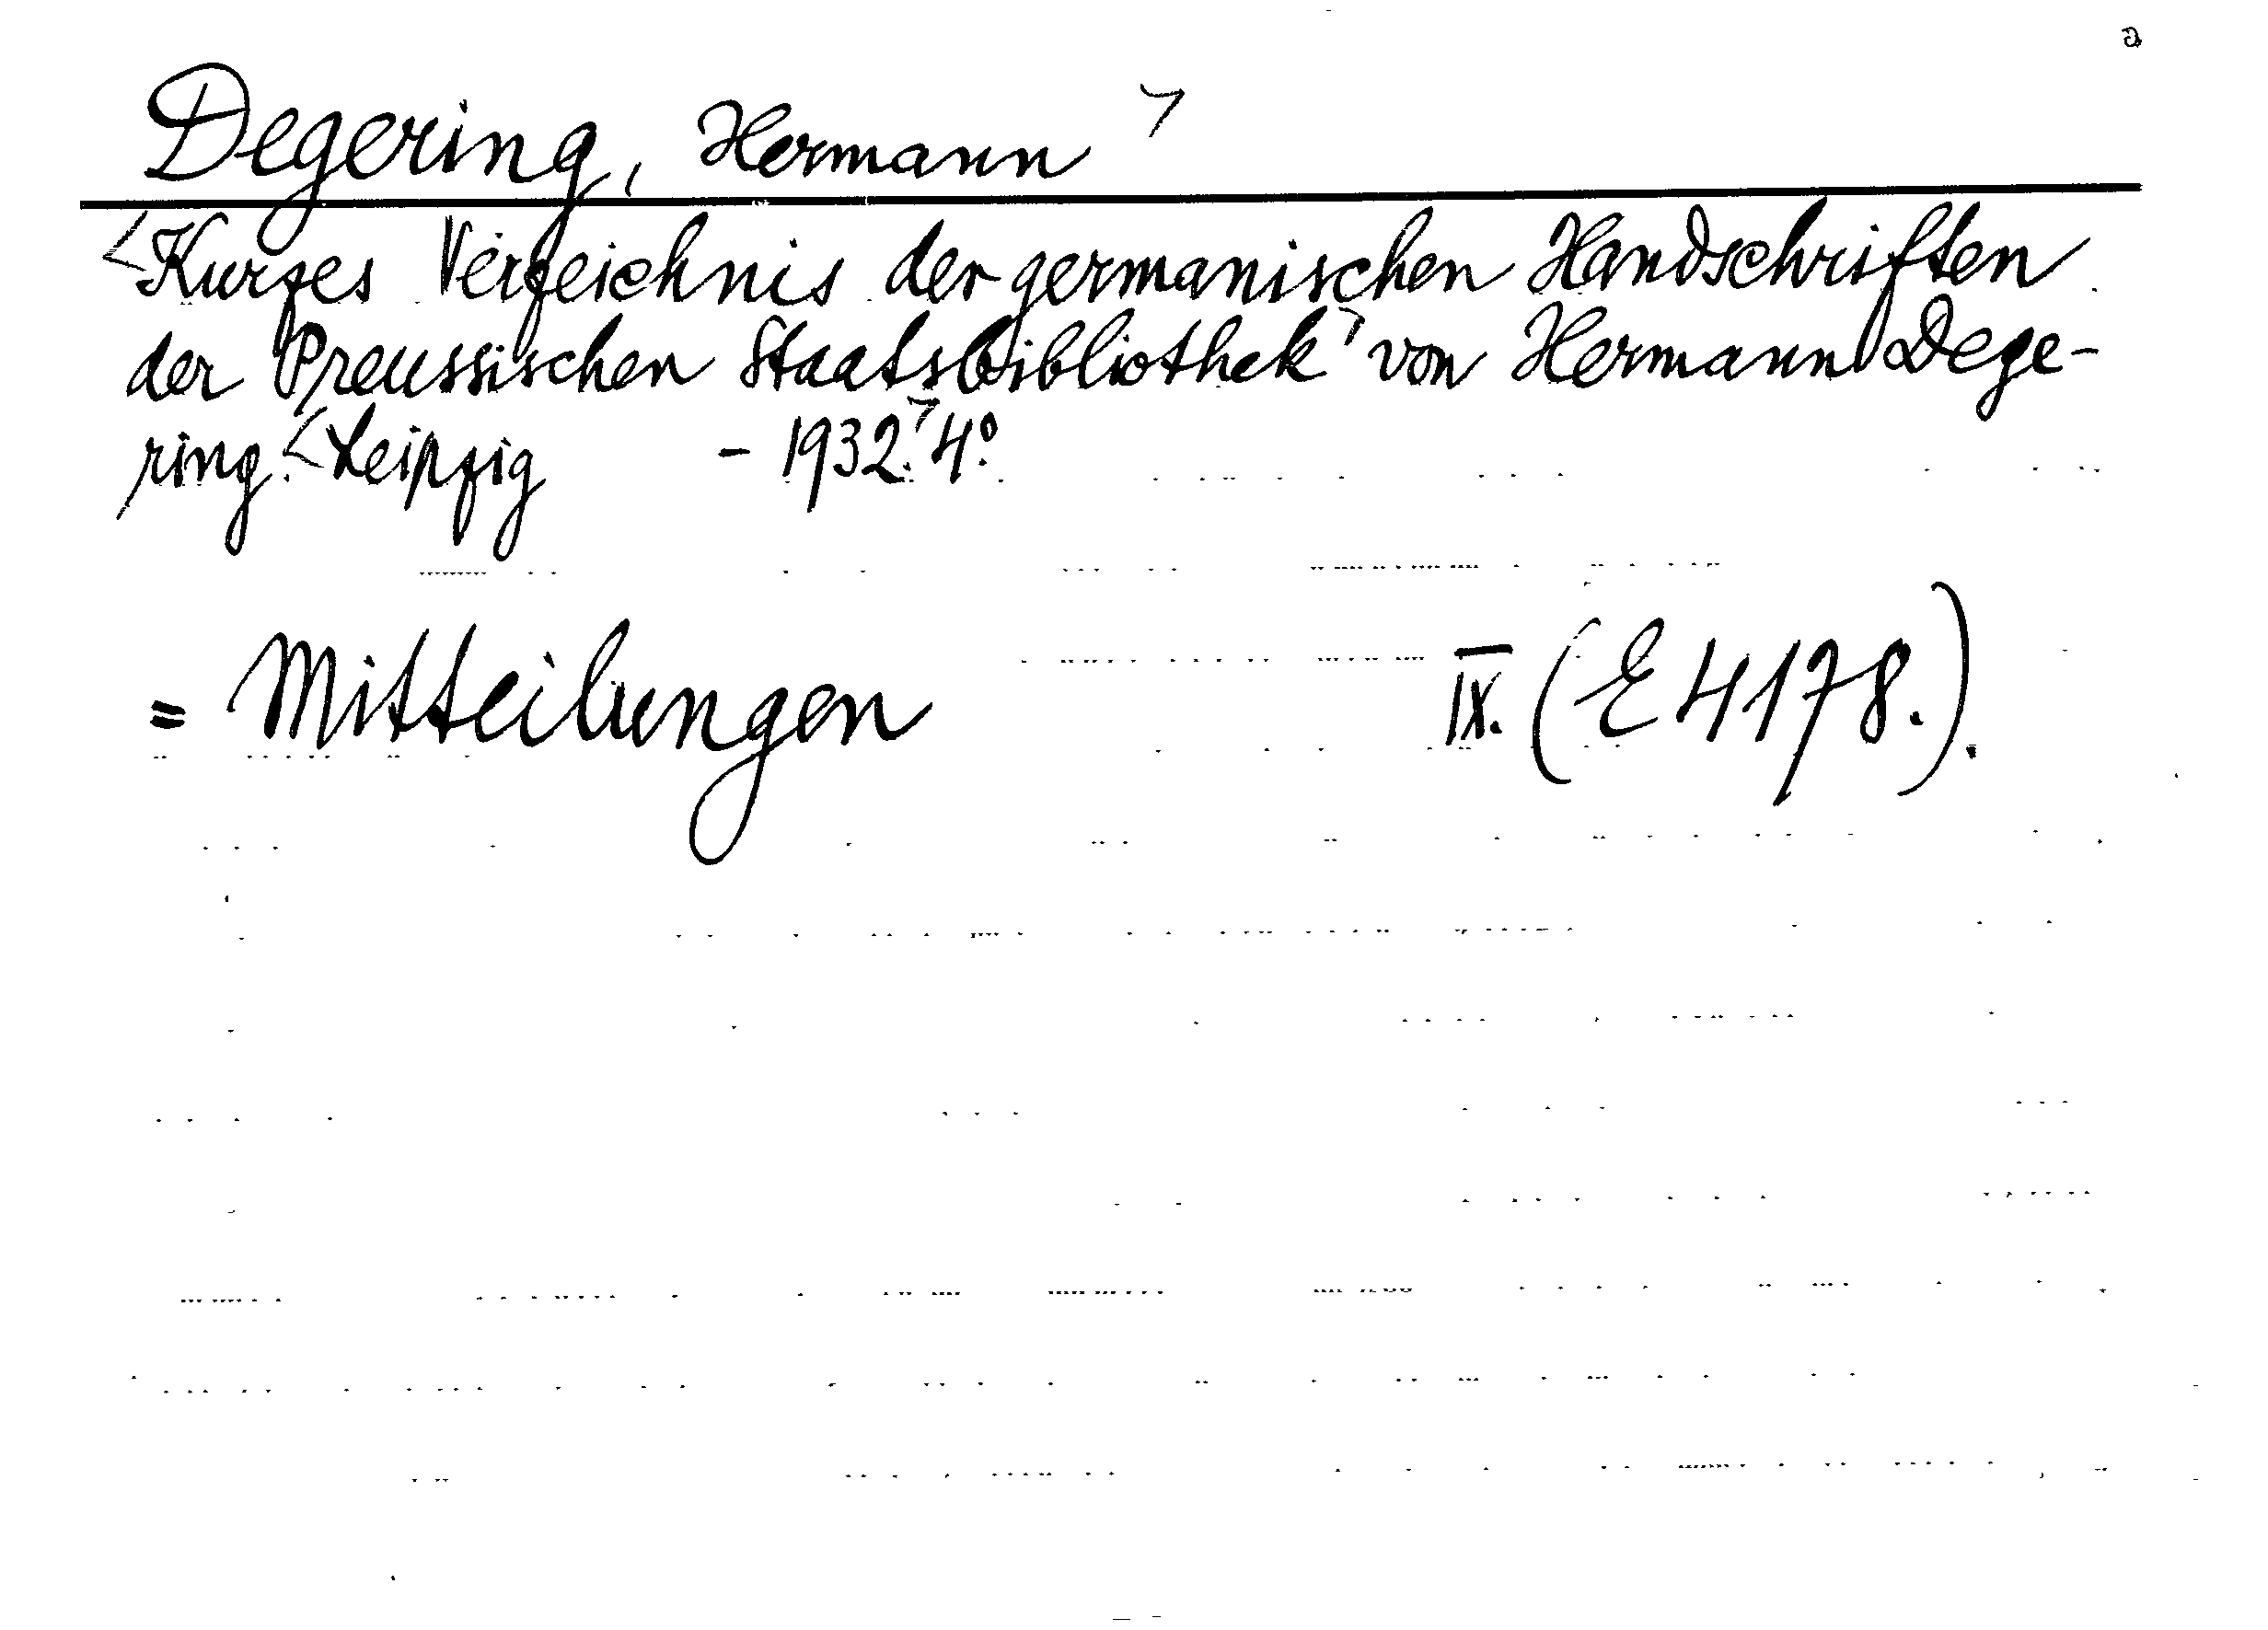 a
Degering, Hermann ⌝
<Kurzes Verzeichnis der germanischen Handschriften
der Preussischen Staatsbibliothek⌝ von Hermann Dege-
ring. <Leipzig - 1932.⌝ 4º.
= Mitteilungen IX. (E 4178.).